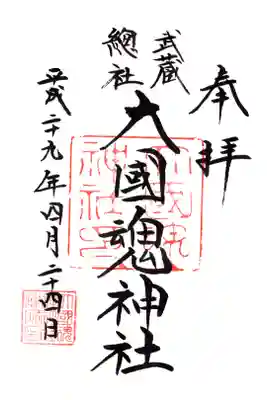 奉拝
武蔵
總社
大國魂神社
平成二十九年四月二十四日